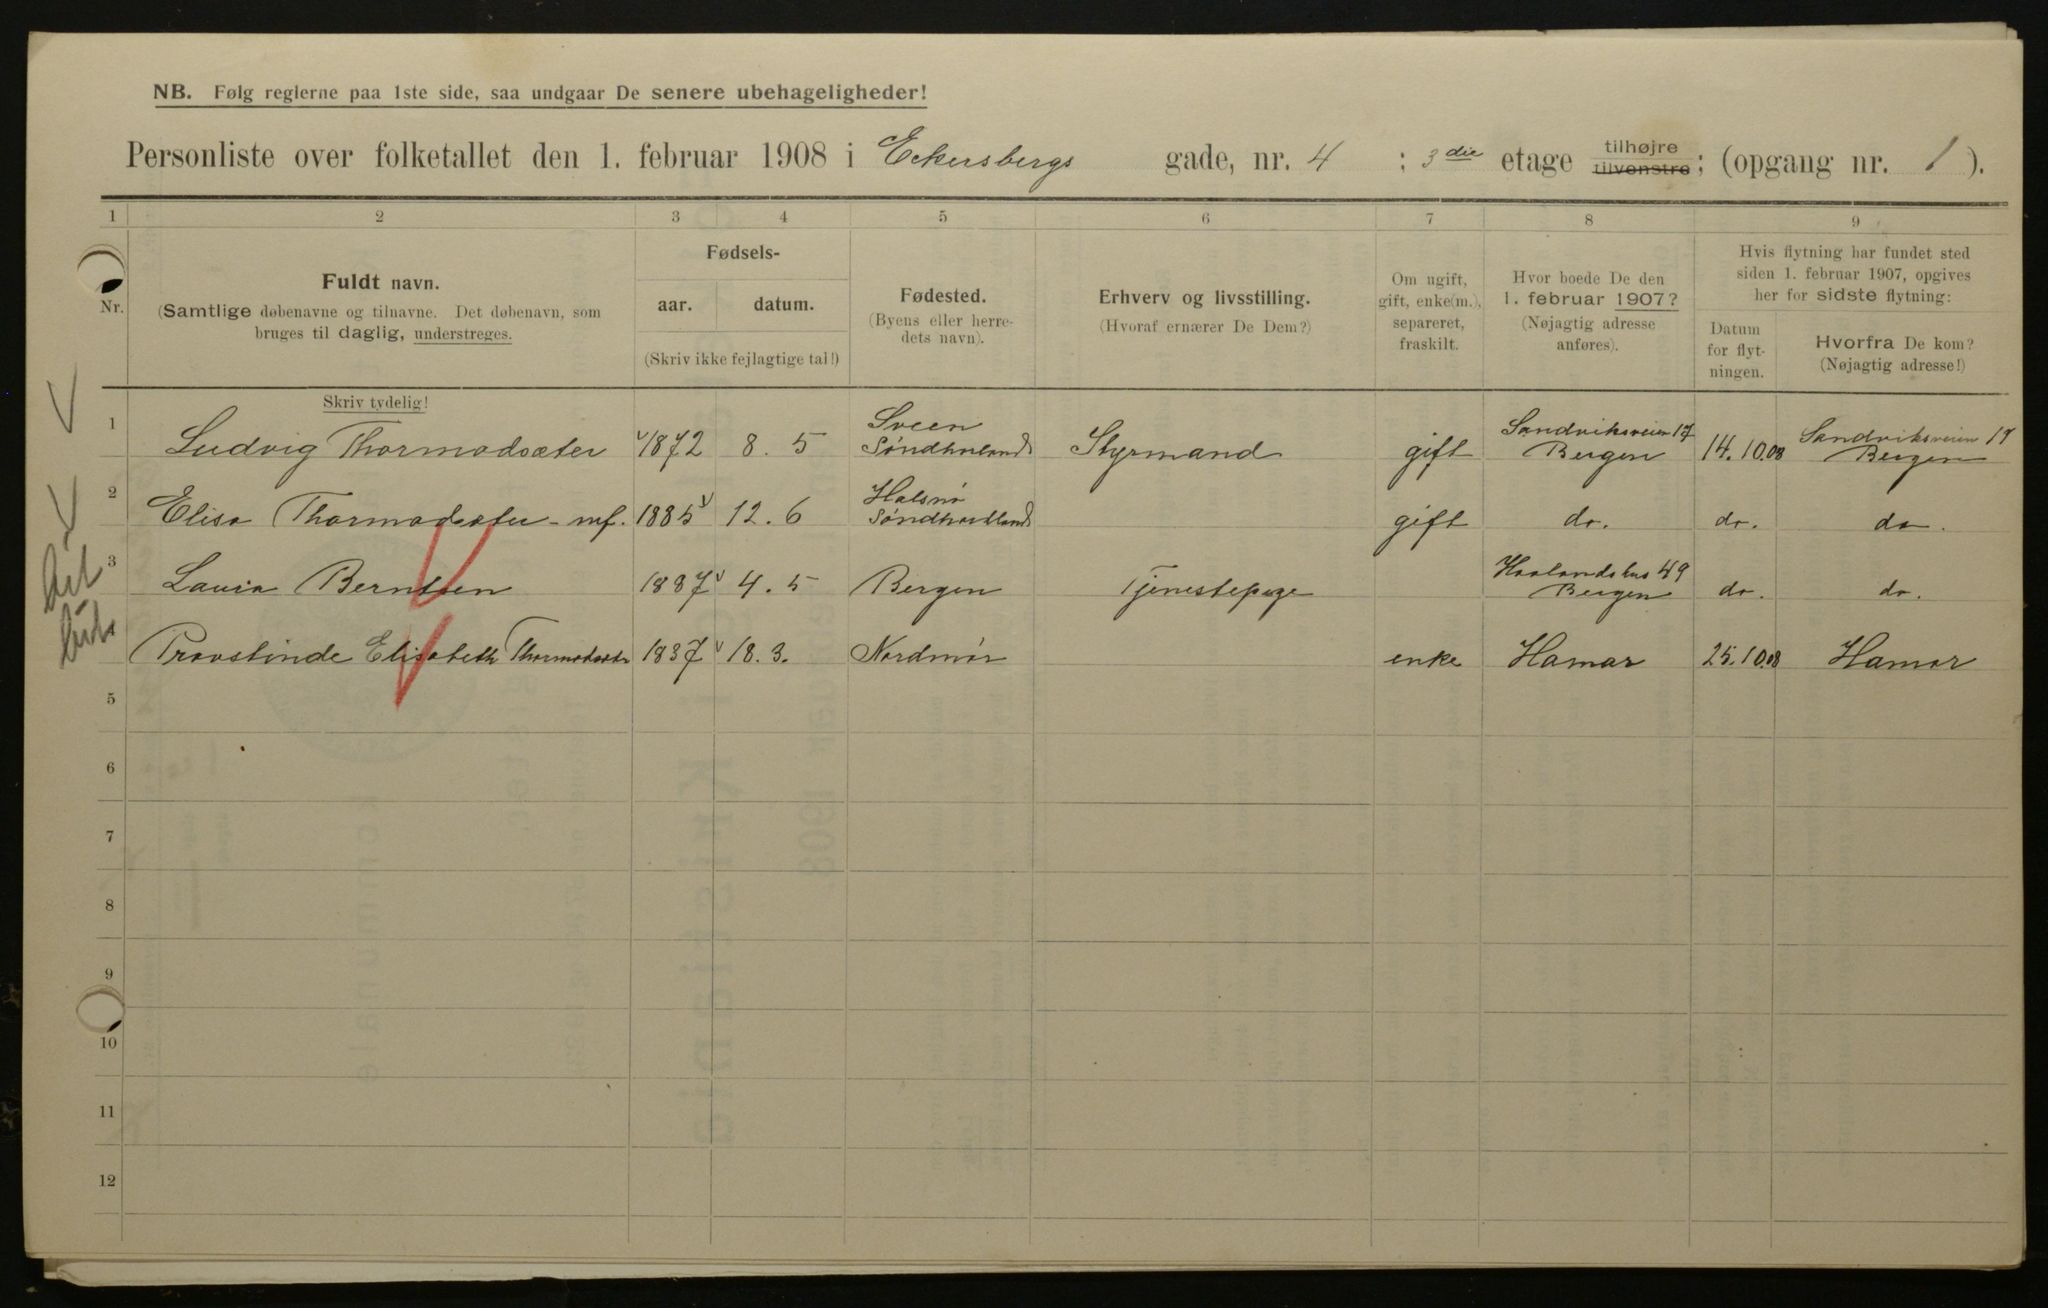 NB. Følg reglerne paa 1ste side, saa undgaar De senere ubehageligheder!
Personliste over folketallet den 1. februar 1908 i Eckersbergs gade, nr. 4 ; 3die etage tilhøjre tilvenstre; (opgang nr. 1 ).
1 2 3 4 5 6 7 8 9
Nr.
Fuldt navn.
(Samtlige døbenavne og tilnavne. Det døbenavn, som
bruges til daglig, understreges.
Skriv tydelig!
Fødsels-
aar. datum.
(Skriv ikke fejlagtige tal!)
Fødested.
(Byens eller herre-
dets navn).
Erhverv og livsstilling.
(Hvoraf ernærer De Dem?)
Om ugift,
gift, enke(m.),
separeret,
fraskilt.
Hvor boede De den
1. februar 1907?
(Nøjagtig adresse
anføres).
Hvis flytning har fundet sted
siden 1. februar 1907, opgives
her for sidste flytning:
Datum
for flyt-
ningen.
Hvorfra De kom?
(Nøjagtig adresse!)
1 Ludvig Thormodsæter 1872 8. 5 Sveen Søndhorland Styrmand gift Sandviksveien 17 Bergen 14.10.08 Sandviksveien 17 Bergen
2 Elisa Thormodsæter 1885 12. 6 Halsnø Søndhordland gift do. do. do.
3 Laura Berntsen 1887 4. 5 Bergen Tjenestepige Haalandshus 49 Bergen do. do.
Provstinde Elisabeth Thormodsæter 1837 18. 3. Nordmør enke Hamar 25.10.08 Hamar
5
6
7
8
9
10
11
12